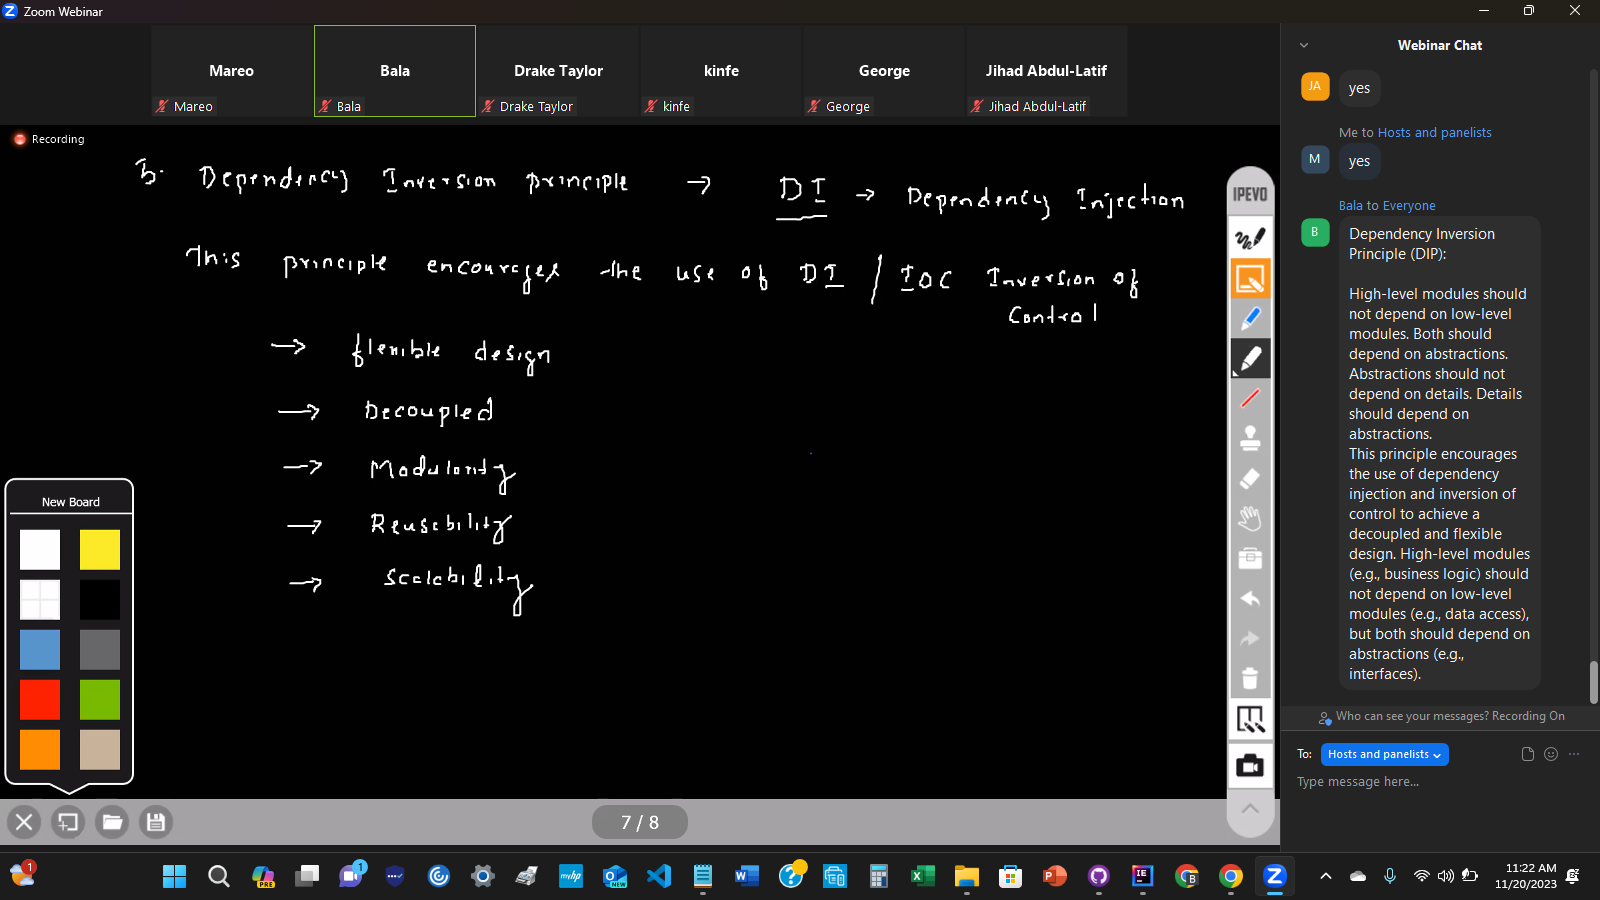 Zoom Webinar
Mareo
Bala
Drake Taylor
kinfe
George
Jihad Abdul-Latif
Mareo
Bala
Drake Taylor
kinfe
George
Jihad Abdul-Latif
Recording
5. Dependency Inversion principle → DI → Dependency Injection
This principle encourages the use of DI / IOC Inversion of
Control
→ flexible design
→ Decoupled
→ Modularity
→ Reusability
→ Scalability
New Board
IPEVO
7 / 8
Webinar Chat
JA
yes
Me to Hosts and panelists
M
yes
Bala to Everyone
B
Dependency Inversion
Principle (DIP):
High-level modules should
not depend on low-level
modules. Both should
depend on abstractions.
Abstractions should not
depend on details. Details
should depend on
abstractions.
This principle encourages
the use of dependency
injection and inversion of
control to achieve a
decoupled and flexible
design. High-level modules
(e.g., business logic) should
not depend on low-level
modules (e.g., data access),
but both should depend on
abstractions (e.g.,
interfaces).
Who can see your messages? Recording On
To: Hosts and panelists
Type message here...
1
PRE
1
myhp
NEW
11:22 AM
11/20/2023